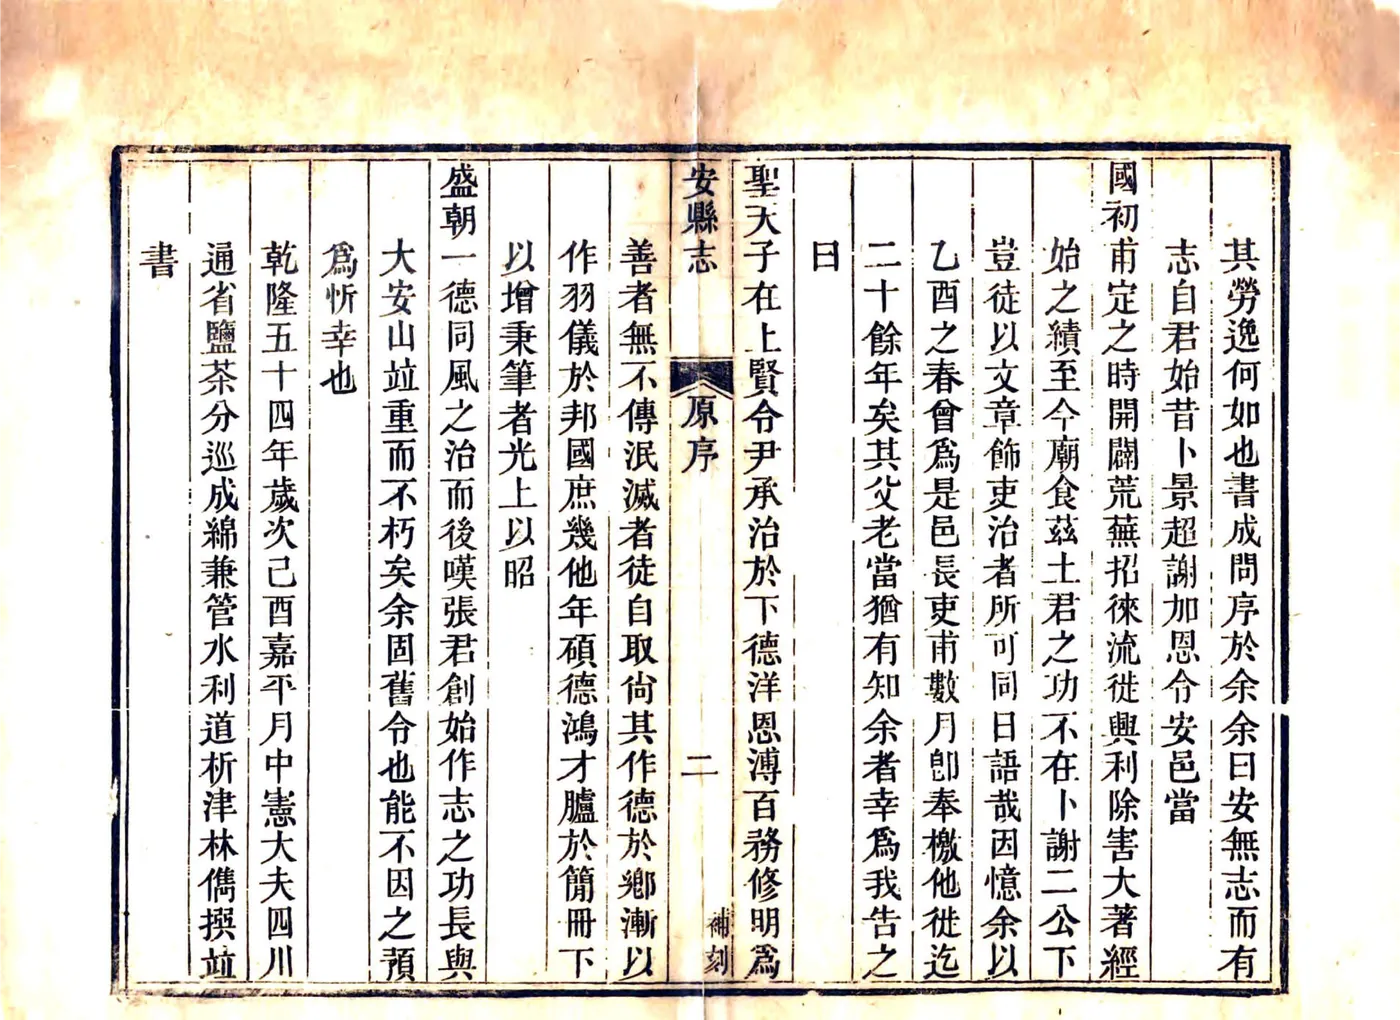 其勞逸何如也書成問序於余余曰安無志而有
志自君始昔卜景超謝加恩令安邑當
國初甫定之時開闢荒蕪招徠流徙興利除害大著經
始之績至今廟食茲土君之功不在卜謝二公下
豈徒以文章飾吏治者所可同日語哉因憶余以
乙酉之春曾爲是邑長吏甫數月卽奉檄他徙迄
二十餘年矣其父老當猶有知余者幸爲我告之
曰
聖天子在上賢令尹承治於下德洋恩溥百務修明爲
安縣志
原序
二
補刻
善者無不傳泯滅者徒自取尙其作德於鄉漸以
作羽儀於邦國庶幾他年碩德鴻才臚於簡冊下
以增秉筆者光上以昭
盛朝一德同風之治而後嘆張君創始作志之功長與
大安山竝重而不朽矣余固舊令也能不因之預
爲忻幸也
乾隆五十四年歲次己酉嘉平月中憲大夫四川
通省鹽茶分巡成綿兼管水利道析津林儁撰竝
書